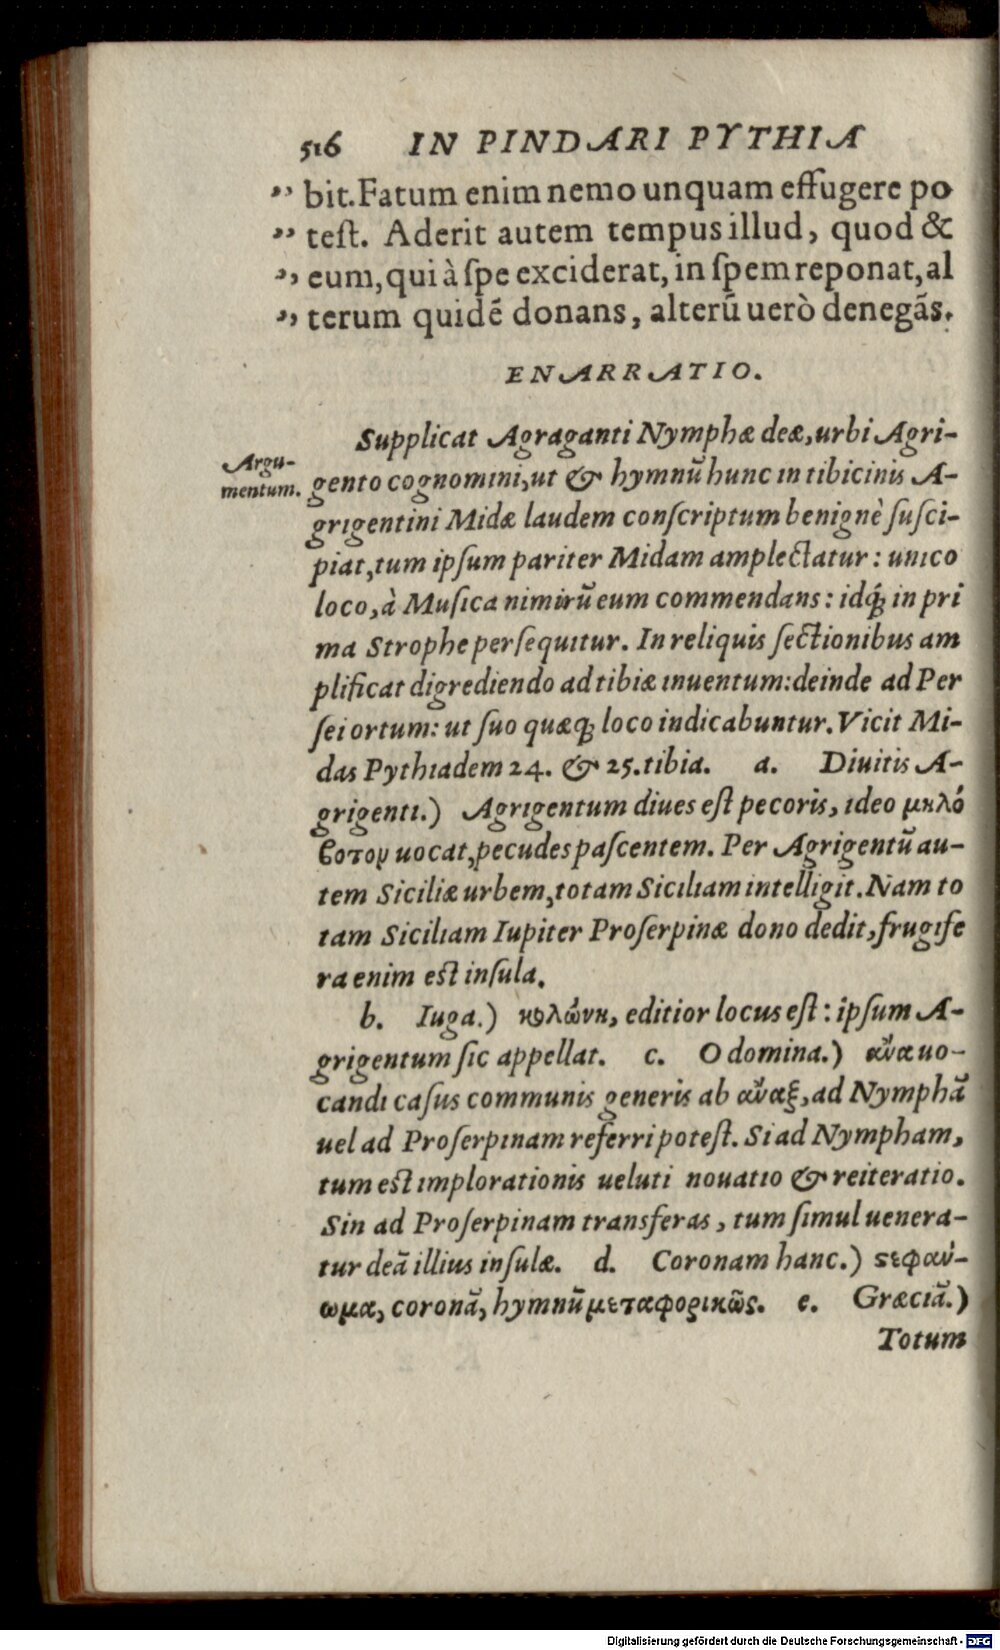 516 IN PINDARI PYTHIA
” bit. Fatum enim nemo unquam effugere po
” teſt. Aderit autem tempus illud, quod &
” eum, qui à ſpe exciderat, in ſpem reponat, al
” terum quidē donans, alterū uerò denegās.
ENARRATIO.
Supplicat Agraganti Nymphæ deæ, urbi Agri-
Argu-
mentum.
gento cognomini, ut & hymnū hunc in tibicinis A-
grigentini Midæ laudem conſcriptum benignè ſuſci-
piat, tum ipſum pariter Midam amplectatur: unico
loco, à Muſica nimirū eum commendans: idq́; in pri
ma Strophe perſequitur. In reliquis ſectionibus am
plificat digrediendo ad tibiæ inuentum: deinde ad Per
ſei ortum: ut ſuo quæq; loco indicabuntur. Vicit Mi-
das Pythiadem 24. & 25. tibia. a. Diuitis A-
grigenti.) Agrigentum diues eſt pecoris, ideo μηλό
ϐοτον uocat, pecudes paſcentem. Per Agrigentū au-
tem Siciliæ urbem, totam Siciliam intelligit. Nam to
tam Siciliam Iupiter Proſerpinæ dono dedit, frugife
ra enim eſt inſula.
b. Iuga.) κολώνη, editior locus eſt: ipſum A-
grigentum ſic appellat. c. O domina.) ἄνα uo-
candi caſus communis generis ab ἄναξ, ad Nymphā
uel ad Proſerpinam referri poteſt. Si ad Nympham,
tum eſt implorationis ueluti nouatio & reiteratio.
Sin ad Proſerpinam transferas, tum ſimul uenera-
tur deā illius inſulæ. d. Coronam hanc.) ϛεφαν́-
ωμα, coronā, hymnū μεταφορικῶς. e. Græciā.)
Totum
Digitalisierung gefördert durch die Deutsche Forschungsgemeinschaft - DFG